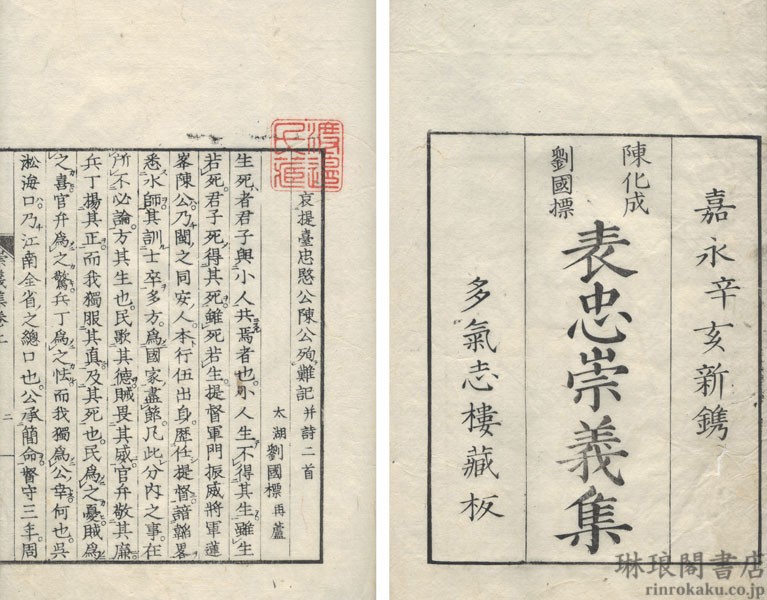 嘉永辛亥新鐫
陳化成
劉國標
表忠崇義集
多氣志樓藏板
渡邉
氏藏
哀提臺忠愍公陳公殉難記 并詩二首
太湖劉國標再蘆
生死者君子與小人共焉者也小人生不得其生雖生
若死君子死得其死雖死若生提督軍門振威將軍蓮
峯陳公乃閩之同安人本行伍出身歷任提督諳韜畧
悉水師其訓士卒多方爲國家盡節凡此分內之事在
所不必論方其生也民歌其德賊畏其威官弁敬其廉
兵丁揚其正而我獨服其真及其死也民爲之憂賊爲
之喜官弁爲之驚兵丁爲之怯而我獨爲公幸何也吳
淞海口乃江南全省之總口也公承簡命督守三年周
崇義集卷上
二
琳琅閣書店
rinrokaku.co.jp